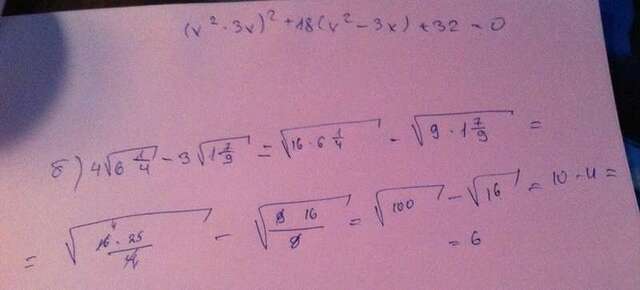 (x² - 3x)² + 18(x² - 3x) + 32 = 0
б) 4√6 1/4 - 3√1 7/9 = √16 · 6 1/4 - √9 · 1 7/9 =
= √16 · 25/4 - √9 16/9 = √100 - √16 = 10 - 4 =
= 6